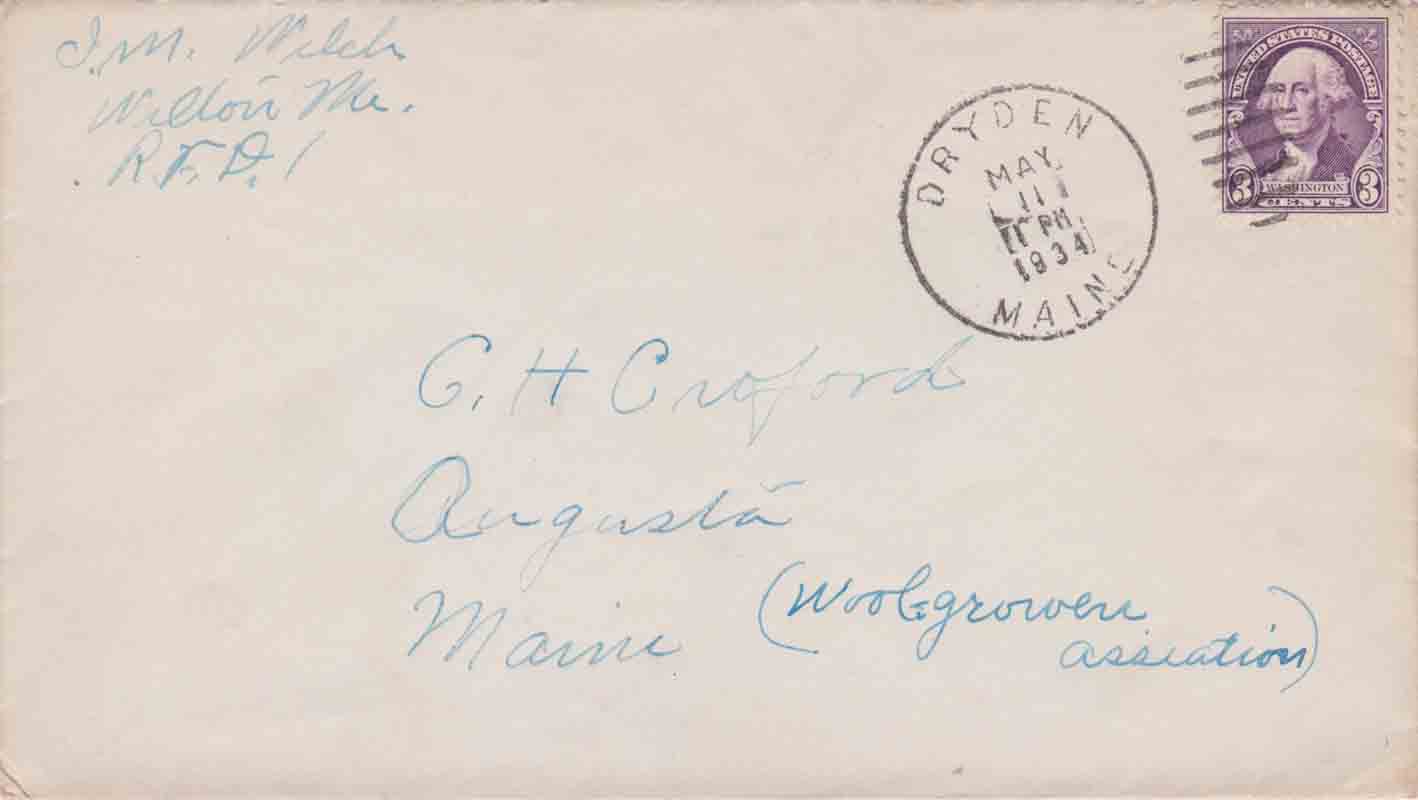 J. M. Welch
Wilton Me.
R.F.D. 1
DRYDEN
MAY
11
1 PM
1934
MAINE
UNITED STATES POSTAGE
3 WASHINGTON 3
CENTS
C. H Croford
Augusta
Maine
(Woolgrowers
assiation)